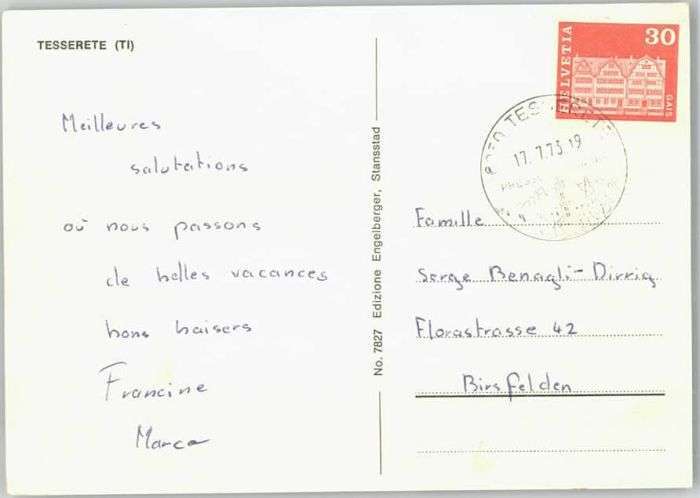 TESSERETE (TI)
Meilleures
salutations
où nous passons
de belles vacances
bons baisers
Francine
Marco
No. 7827 Edizione Engelberger, Stansstad
HELVETIA
30
GAIS
TESSERETE
17.7.73 19
Famille
Serge Benagli-Dirrig
Florastrasse 42
Birsfelden